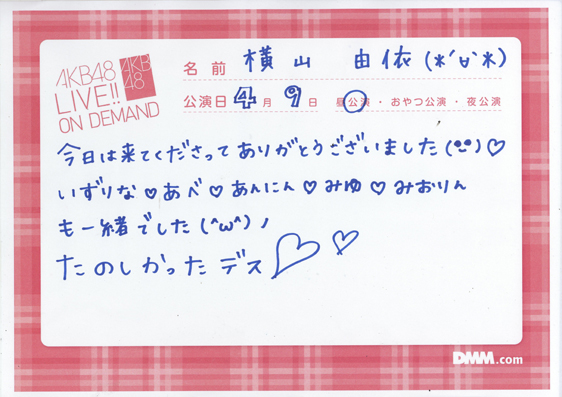 AKB48
LIVE!!
ON DEMAND
AKB
48
名前 横山 由依(*´∀`*)
公演日 4月9日 昼公演・おやつ公演・夜公演
今日は来てくださってありがとうございました(•‿•)♡
いずりな♡あべ♡あんにん♡みゆ♡みおりん
も一緒でした(^ω^)ノ
たのしかったデス♡♡
DMM.com